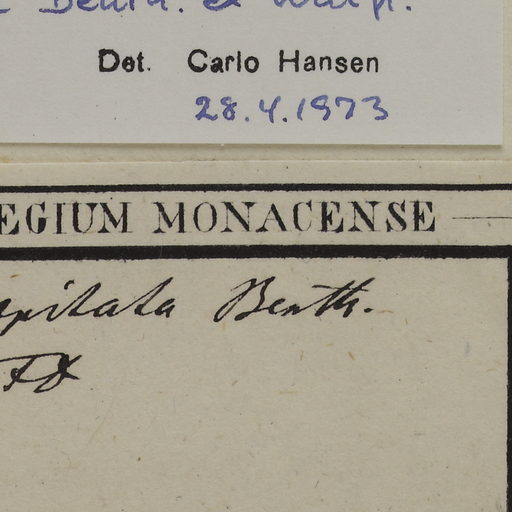 Benth. ex Walp.
Det. Carlo Hansen
28.4.1973
EGIUM MONACENSE
apitata Benth.